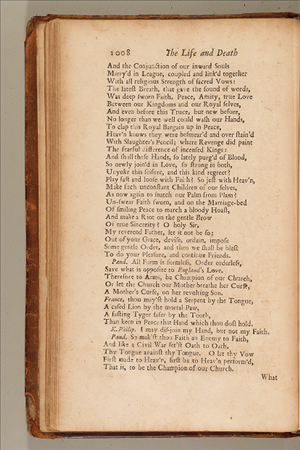 1008 The Life and Death
And the Conjunction of our inward Souls
Marry'd in League, coupled and link'd together
With all religious Strength of sacred Vows:
The latest Breath, that gave the sound of words,
Was deep sworn Faith, Peace, Amity, true Love
Between our Kingdoms and our Royal selves,
And even before this Truce, but new before,
No longer than we well could wash our Hands,
To clap this Royal Bargain up in Peace,
Heav'n knows they were besmear'd and over stain'd
With Slaughter's Pencil; where Revenge did paint
The fearful difference of incensed Kings:
And shall these Hands, so lately purg'd of Blood,
So newly join'd in Love, so strong in both,
Unyoke this seisure, and this kind regreet?
Play fast and loose with Faith? So jest with Heav'n,
Make such unconstant Children of our selves,
As now again to snatch our Palm from Palm?
Un-swear Faith sworn, and on the Marriage-bed
Of smiling Peace to march a bloody Hoast,
And make a Riot on the gentle Brow
Of true Sincerity? O holy Sir,
My reverend Father, let it not be so;
Out of your Grace, devise, ordain, impose
Some gentle Order, and then we shall be blest
To do your Pleasure, and continue Friends.
Pand. All Form is formless, Order orderless,
Save what is opposite to England's Love.
Therefore to Arms, be Champion of our Church,
Or let the Church our Mother breathe her Curse,
A Mother's Curse, on her revolting Son.
France, thou may'st hold a Serpent by the Tongue,
A cased Lion by the mortal Paw,
A fasting Tyger safer by the Tooth,
Than keep in Peace that Hand which thou dost hold.
K. Philip. I may dis-join my Hand, but not my Faith.
Pand. So mak'st thou Faith an Enemy to Faith,
And like a Civil War set'st Oath to Oath,
Thy Tongue against thy Tongue. O let thy Vow
First made to Heav'n, first be to Heav'n perform'd,
That is, to be the Champion of our Church.
What